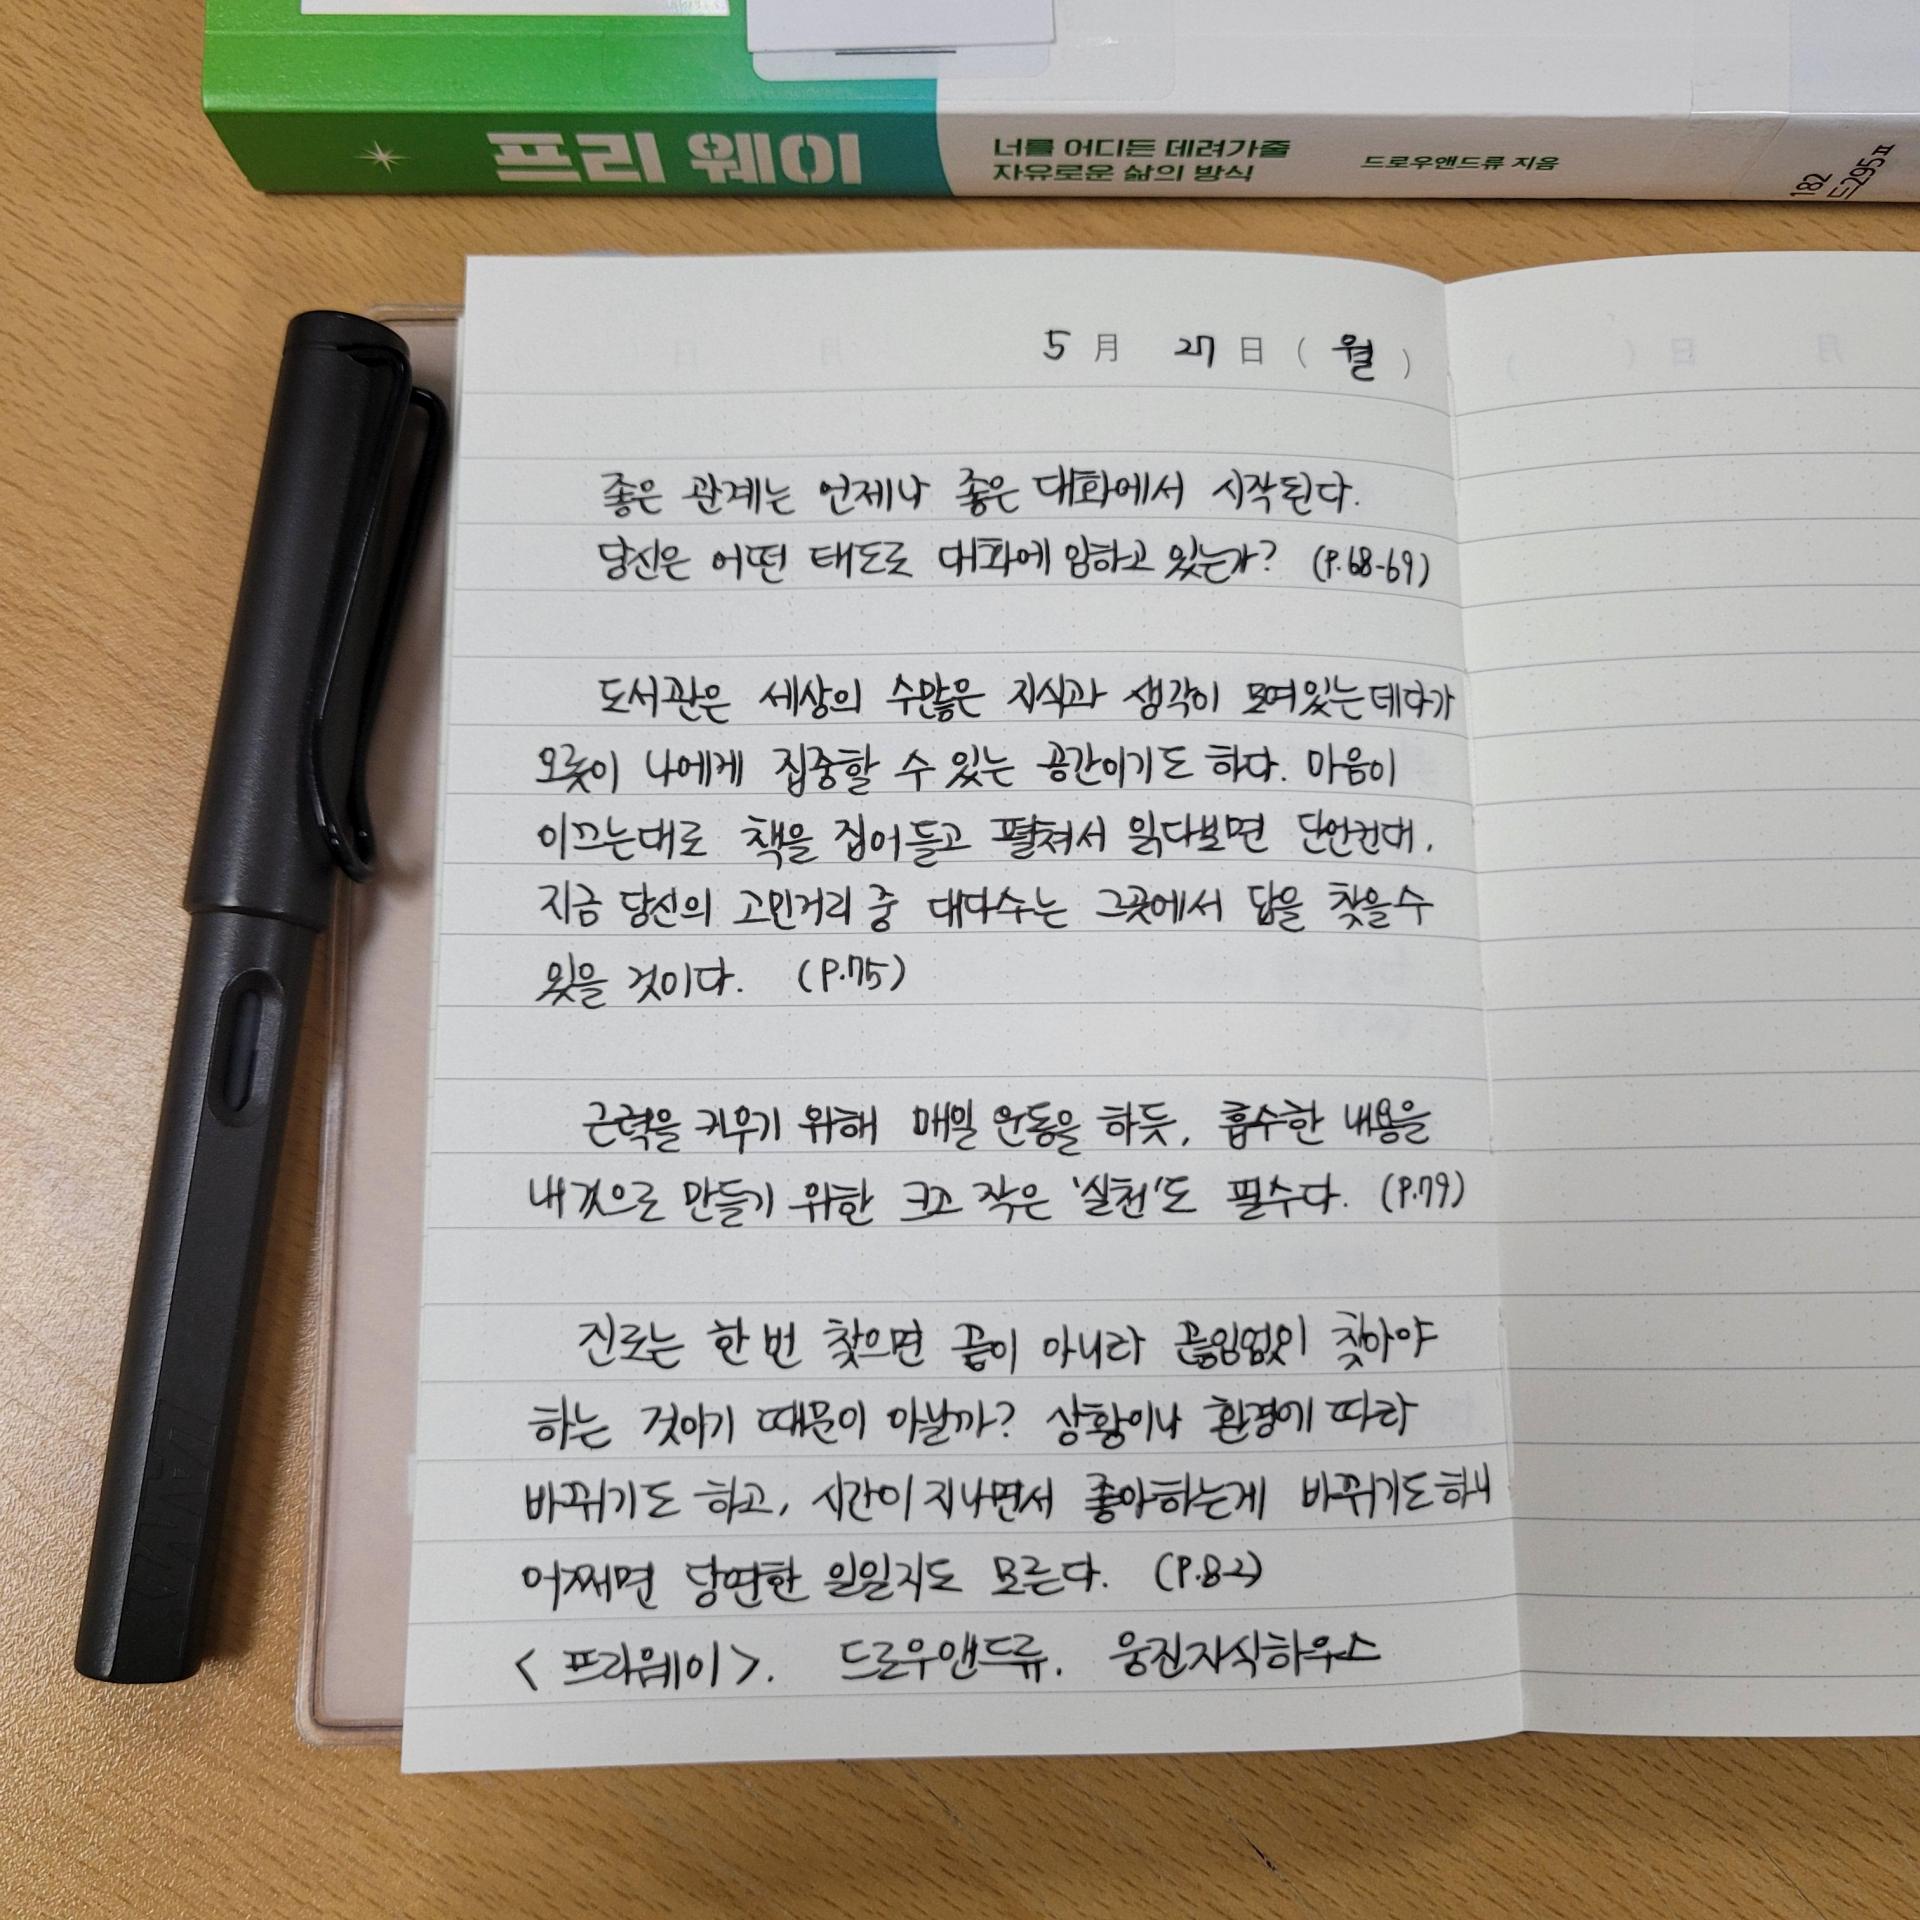 프리 웨이
너를 어디든 데려가줄
자유로운 삶의 방식
드로우앤드류 지음
182
드295ㅍ
5 月 27 日 ( 월 )
좋은 관계는 언제나 좋은 대화에서 시작된다.
당신은 어떤 태도로 대화에 임하고 있는가? (P.68-69)
도서관은 세상의 수많은 지식과 생각이 모여있는데다가
오롯이 나에게 집중할 수 있는 공간이기도 하다. 마음이
이끄는대로 책을 집어들고 펼쳐서 읽다보면 단언컨대,
지금 당신의 고민거리 중 대다수는 그곳에서 답을 찾을 수
있을 것이다. (P.75)
근력을 키우기 위해 매일 운동을 하듯, 흡수한 내용을
내 것으로 만들기 위한 크고 작은 '실천'도 필수다. (P.79)
진로는 한 번 찾으면 끝이 아니라 끊임없이 찾아야
하는 것이기 때문이 아닐까? 상황이나 환경에 따라
바뀌기도 하고, 시간이 지나면서 좋아하는게 바뀌기도 하니
어쩌면 당연한 일일지도 모른다. (P.82)
<프리웨이>. 드로우앤드류. 웅진지식하우스
LAMY